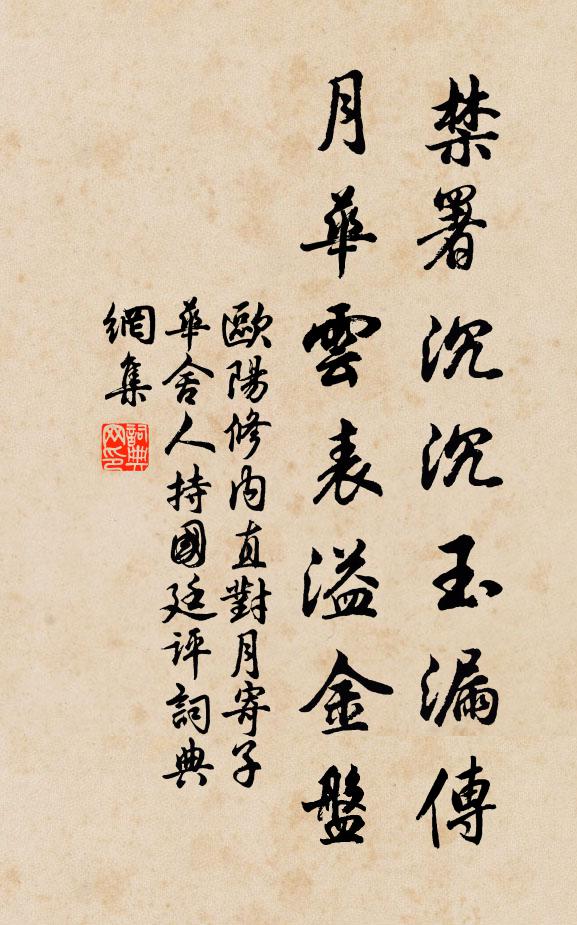 禁署沉沉玉漏傳
月華雲表溢金盤
歐陽修内直對月寄子
華舍人持國廷评詞典
網集
詞典
网印